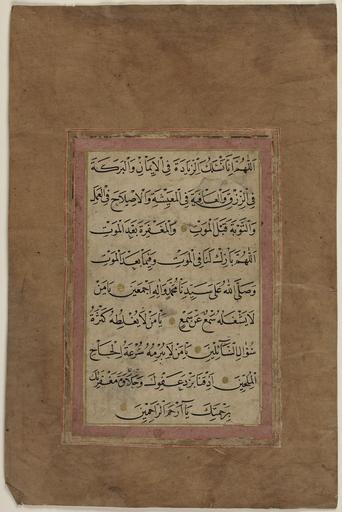 اللهم انا نسئلك الزيادة في الايمان والبركة
في الرزق والعافية في المعيشة والاصلاح في العمل
والتوبة قبل الموت والمغفرة بعد الموت
اللهم بارك لنا في الموت وفيما بعد الموت
وصلى الله على سيدنا محمد واله اجمعين يا من
لا يشغله سمع عن سمع يا من لا يغلطه كثرة
سؤال السائلين يا من لا يبرمه الحاح
الملحين اذقنا برد عفوك وحلاوة مغفرتك
برحمتك يا ارحم الراحمين